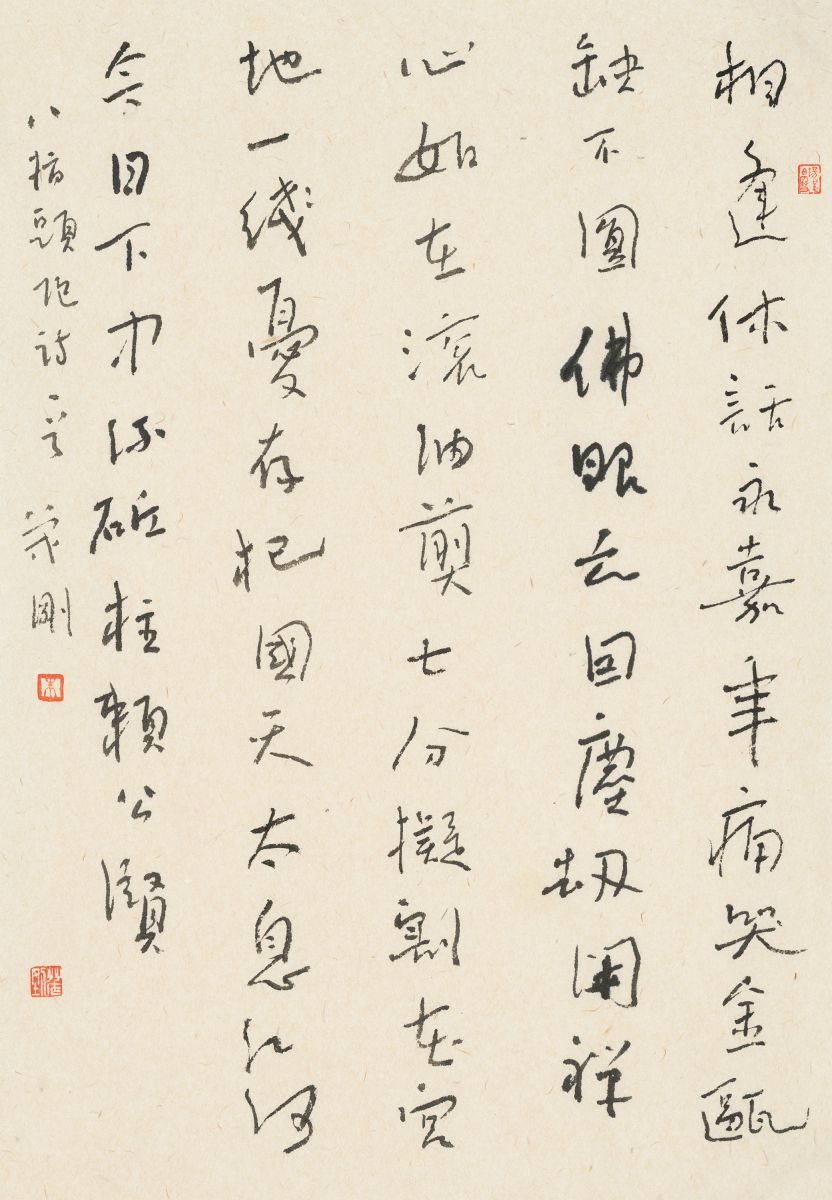 相逢休話永嘉年痛哭金甌
缺不圓佛眼亦因塵劫閉禅
心如在滾油煎七分擬割花宮
地一綫憂存杞國天太息江河
今日下中流砥柱賴公賢
八指頭陀詩一首 茂剛